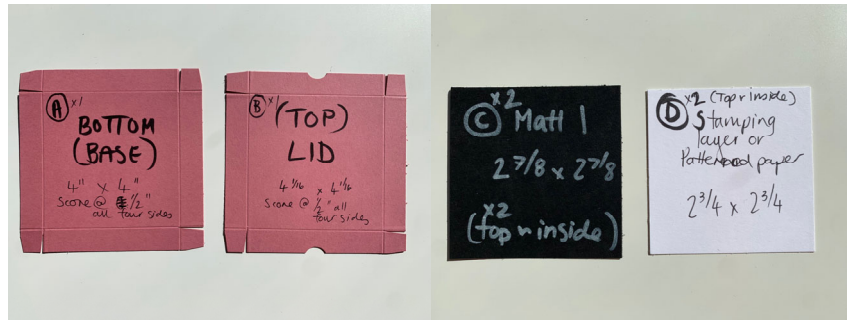 A x1
BOTTOM
(BASE)
4" x 4"
Score @ 1/2"
all four sides
B x1
(TOP)
LID
4 1/16 x 4 1/16
Score @ 1/2" all
four sides
C x2 Matt 1
2 7/8 x 2 7/8
x2
(top n inside)
D x2 (Top n inside)
Stamping
layer or
Patterned paper
2 3/4 x 2 3/4